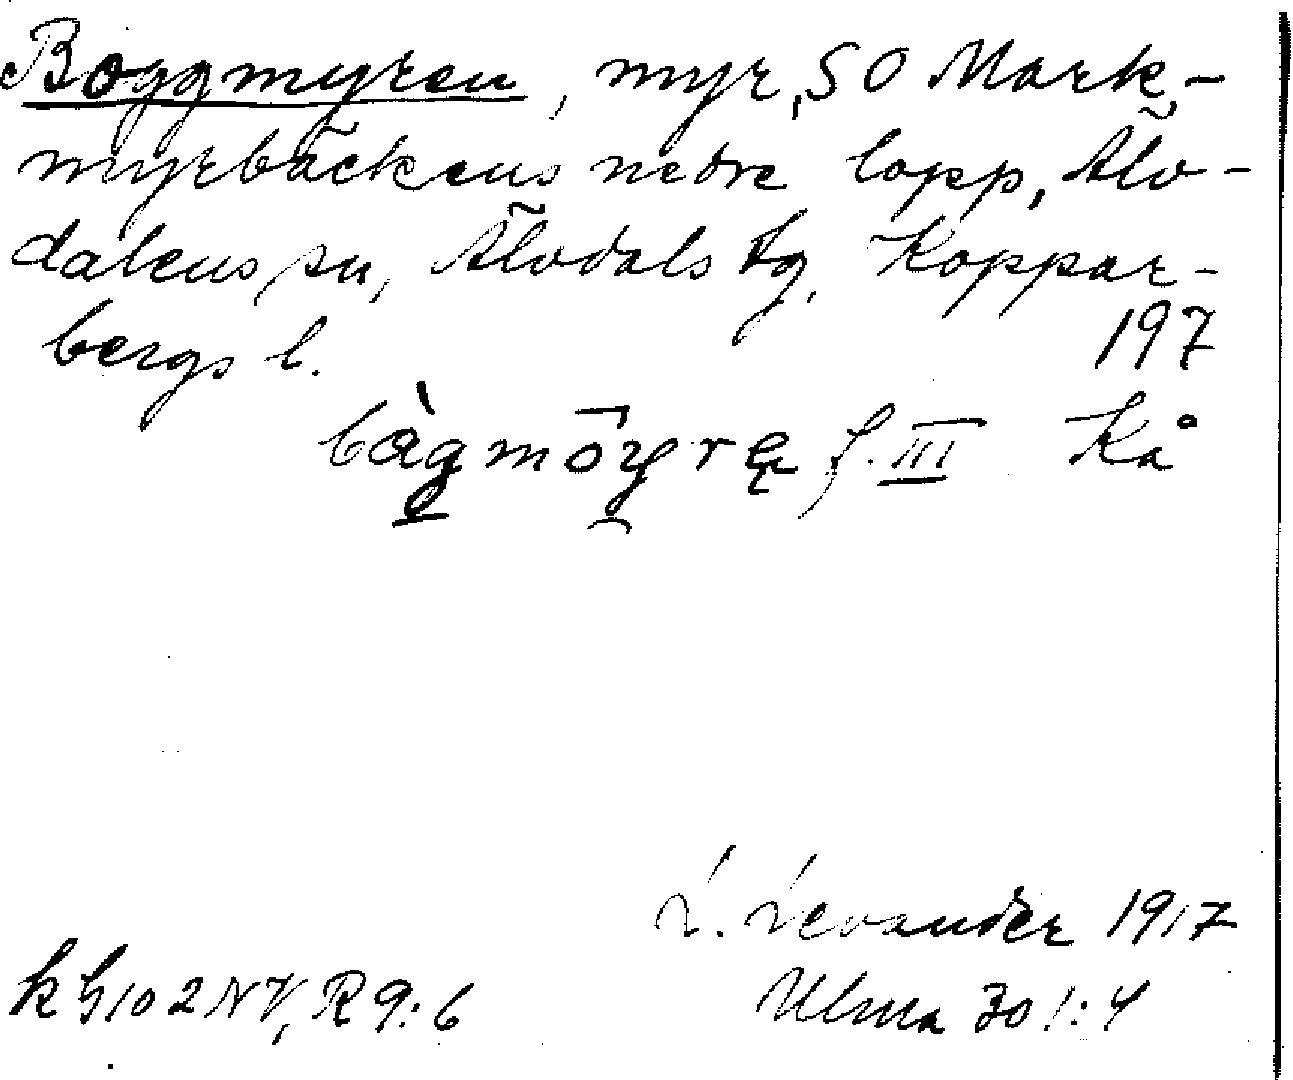 Boggmyren, myr, SO Mark-
myrbäckens nedre lopp, Älv-
dalens sn, Älvdals tg, Koppar-
bergs l.
197
bàgmōyrę f. III Kå
L. Levander 1917
k G 10 2 NV, R 9:6
Ulma 301:4